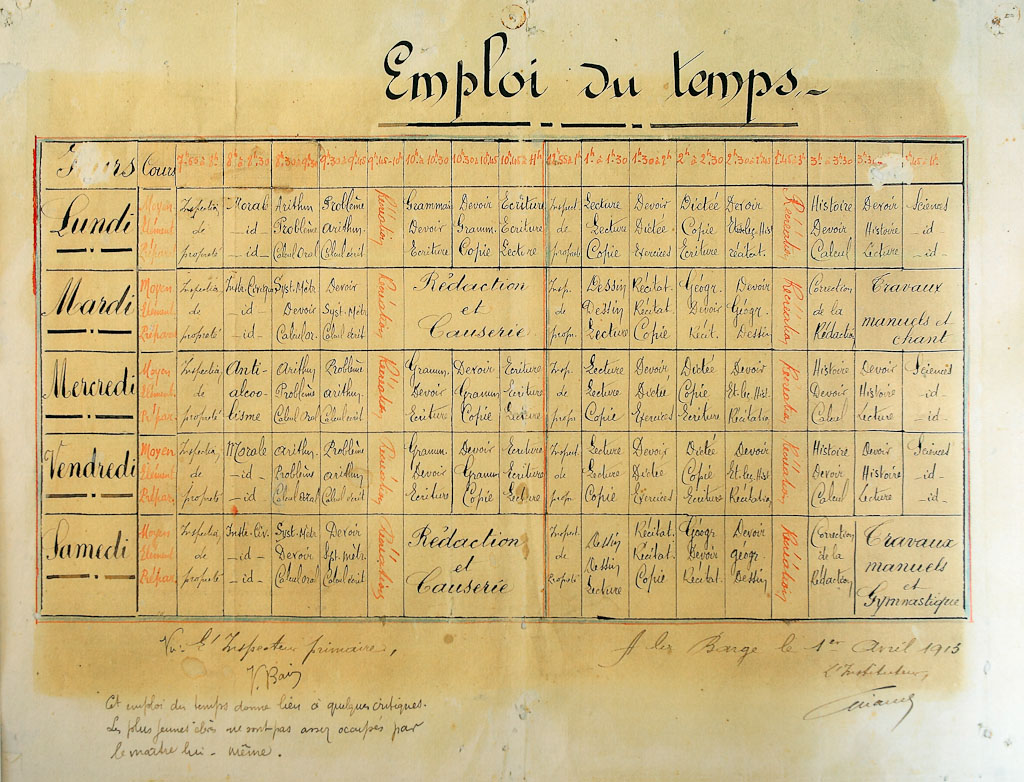 Emploi du temps
Jours Cours 7h55 à 8h 8h à 8h30 8h30 à 9h30 9h30 à 9h45 9h45-10h 10h à 10h30 10h30 à 10h45 10h45 à 11h 12h55 à 1h 1h à 1h30 1h30 à 2h 2h à 2h30 2h30 à 2h45 2h45 à 3h 3h à 3h30 3h45 à 4h
Lundi
Moyen Inspection Morale Arithm Problème Récréation Grammaire Devoir Ecriture Inspect. Lecture Devoir Dictée Devoir Récréation Histoire Devoir Sciences
Elément. de -id- Problème arithm. Devoir Gramm. Ecriture de Lecture Dictée Copie Et. leç. Hist Devoir Histoire -id-
Prépar. propreté -id- Calcul oral Calcul écrit Ecriture Copie Lecture propreté Copie Exercices Ecriture récitat. Calcul Lecture -id-
Mardi
Moyen Inspection Inst. Civique Syst. Métr. Devoir Récréation Rédaction Insp. Dessin Récitat. Géogr. Devoir Récréation Correction Travaux
Elément. de -id- Devoir Syst. Métr. et de Dessin Récitat. Devoir Géogr. de la manuels et
Prépar. propreté -id- Calcul or. Calcul écrit Causerie propr. Lecture Copie Récit. Dessin Rédaction chant
Mercredi
Moyen Inspection Anti- Arithm Problème Récréation Gramm. Devoir Ecriture Insp. Lecture Devoir Dictée Devoir Récréation Histoire Devoir Sciences
Elément. de alcoo- Problème arithm. Devoir Gramm Ecriture de Lecture Dictée Copie Et. leç. Hist. Devoir Histoire -id-
Prépar. propreté lisme Calcul oral Calcul écrit Ecriture Copie Lecture propr. Copie Exercices Ecriture Récitation Calcul Lecture -id-
Vendredi
Moyen Inspection Morale arithm. Problème Récréation Gramm. Devoir Ecriture Inspect. Lecture Devoir Dictée Devoir Récréation Histoire Devoir Sciences
Elément. de -id- Problème arithm Devoir Gramm Ecriture de Lecture Dictée Copie Et. leç. Hist Devoir Histoire -id-
Prépar. propreté -id- Calcul oral Calcul écrit Ecriture Copie Lecture propr. Copie Exercices Ecriture Récitation Calcul Lecture -id-
Samedi
Moyen Inspection Inst. Civ. Syst. Métr. Devoir Récréation Rédaction Inspect. Dessin Récitat. Géogr Devoir Récréation Correction Travaux
Elément. de -id- Devoir Syst. métr. et de Dessin Récitat. Devoir géogr. de la manuels et
Prépar. propreté -id- Calcul oral Calcul écrit Causerie Propreté Lecture Copie Récitat. Dessin Rédaction Gymnastique
Vu: l'Inspecteur primaire,
A la Barge le 1er Avril 1913
L'Instituteur,
Cet emploi du temps donne lieu à quelques critiques.
Les plus jeunes élèves ne sont pas assez occupés par
le maître lui-même.